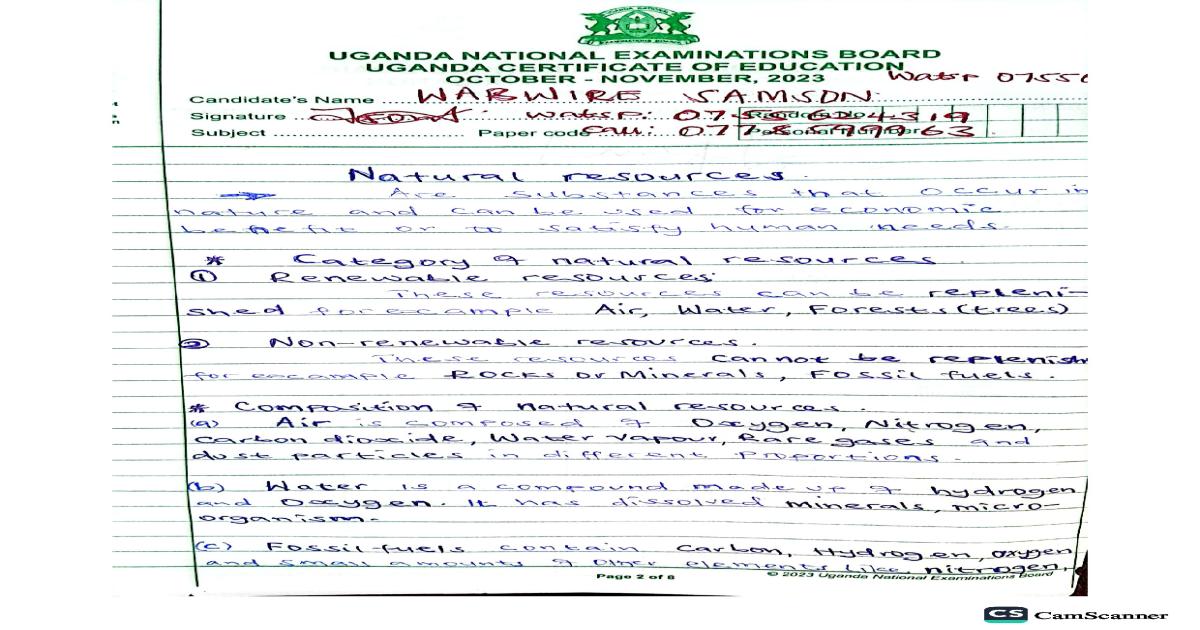 UGANDA NATIONAL EXAMINATIONS BOARD
UGANDA CERTIFICATE OF EDUCATION
OCTOBER - NOVEMBER, 2023
Watsp 07550
Candidate's Name WABWIRE SAMSON
Signature Watsp:
Subject Paper code Call:
Natural resources.
Are substances that occur in
nature and can be used for economic
benefit or to satisfy human needs.
* Category of natural resources.
① Renewable resources:
These resources can be repleni-
shed for example Air, Water, Forests (trees)
② Non-renewable resources.
These resources cannot be replenish
for example Rocks or Minerals, Fossil fuels.
* Composition of natural resources.
(a) Air is composed of Oxygen, Nitrogen,
Carbon dioxide, Water vapour, Rare gases and
dust particles in different proportions.
(b) Water is a compound made up of hydrogen
and Oxygen. It has dissolved minerals, micro-
organism.
(c) Fossil-fuels contain Carbon, Hydrogen, oxygen
and small amounts of other elements like nitrogen,
Page 2 of 8
© 2023 Uganda National Examinations Board
CS CamScanner